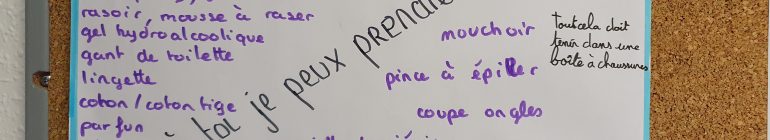 rasoir, mousse à raser
gel hydroalcoolique
gant de toilette
lingette
coton / coton tige
parfun
je peux PRENDRE
mouchoir
pince à épiler
coupe ongles
tout cela doit
tenir dans une
boîte à chaussures